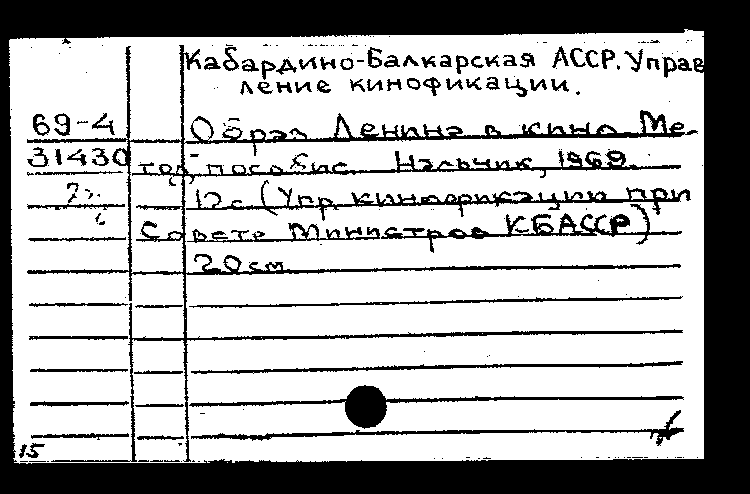 Кабардино-Балкарская АССР. Управ
ление кинофикации.
69-4 Образ Ленина в кино. Ме-
31430 тод. пособие. Нальчик, 1969.
12с (Упр. кинофикации при
Совете Министров КБАССР)
20см.
15